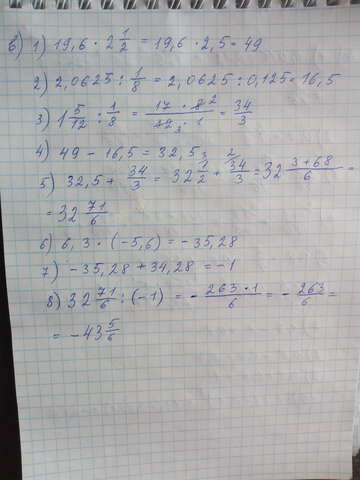 в) 1) 19,6 · 2 1/2 = 19,6 · 2,5 = 49
2) 2,0625 : 1/8 = 2,0625 : 0,125 = 16,5
3) 1 5/12 : 1/8 = 17 · 8 2/12 3 · 1 = 34/3
4) 49 - 16,5 = 32,5
5) 32,5 + 34/3 = 32 1/2 + 34/3 2 = 32 3+68/6 =
= 32 71/6
6) 6,3 · (-5,6) = -35,28
7) -35,28 + 34,28 = -1
8) 32 71/6 : (-1) = - 263·1/6 = - 263/6 =
= -43 5/6